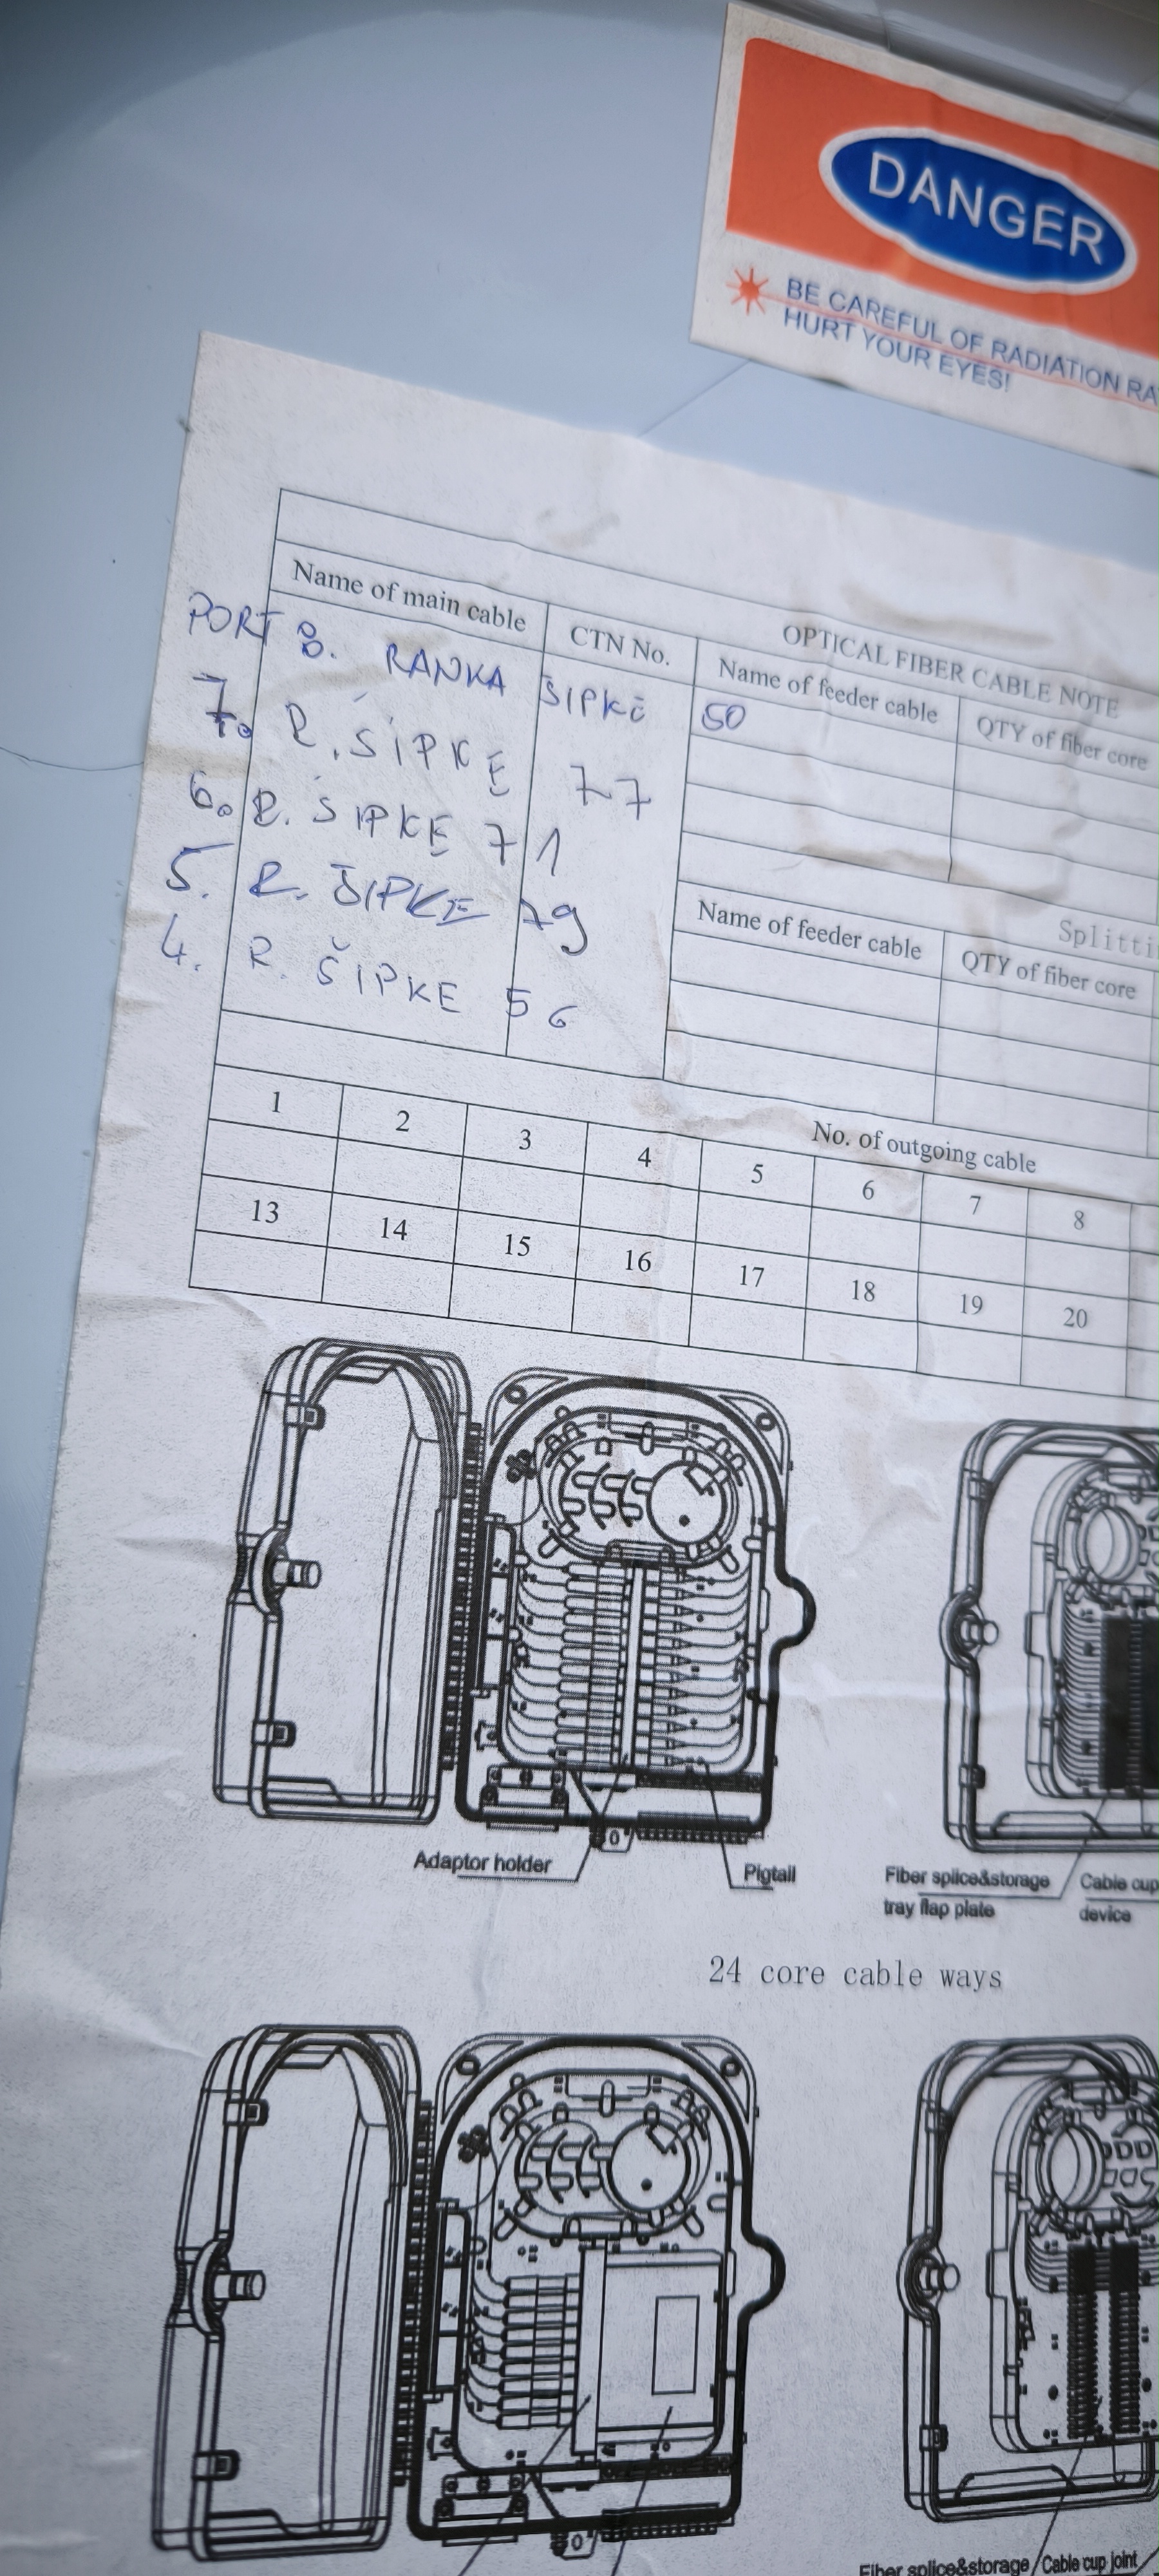 DANGER
BE CAREFUL OF RADIATION
HURT YOUR EYES!
OPTICAL FIBER CABLE NOTE
Name of main cable CTN No. Name of feeder cable QTY of fiber core
PORT 8. RANKA ŠIPKE 50
7. R. ŠIPKE 77
6. R. ŠIPKE 71
5. R. ŠIPKE 79
4. R. ŠIPKE 56
Name of feeder cable QTY of fiber core
No. of outgoing cable
1 2 3 4 5 6 7 8
13 14 15 16 17 18 19 20
Adaptor holder Pigtail
Fiber splice&storage tray flap plate
Cable cup
device
24 core cable ways
Fiber splice&storage Cable cup joint